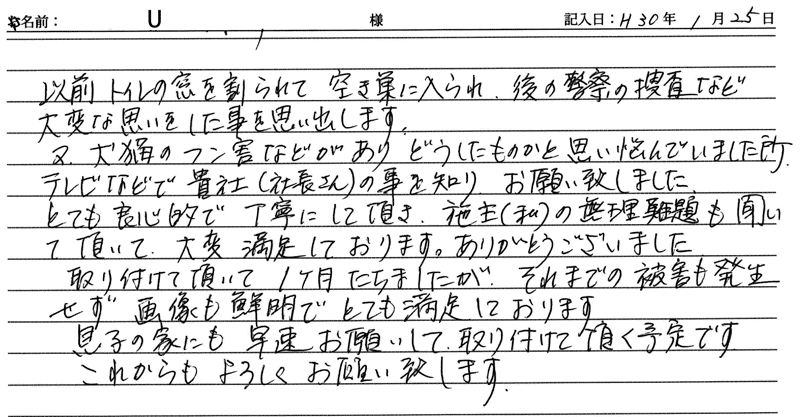 お名前： U 様 記入日：H30年 1月25日
以前 トイレの窓を割られて 空き巣に入られ、後の警察の捜査など
大変な思いをした事を思い出します。
又、犬猫のフン害などがあり どうしたものかと思い悩んでいました所、
テレビなどで 貴社（社長さん）の事を知り、お願い致しました。
とても良心的で 丁寧にして頂き、施主（私）の無理難題も聞い
て頂いて、大変 満足しております。ありがとうございました
取り付けて頂いて 1ヶ月たちましたが、それまでの被害も発生
せず 画像も鮮明で とても満足しております
息子の家にも 早速 お願いして、取り付けて頂く予定です
これからも よろしく お願い致します。